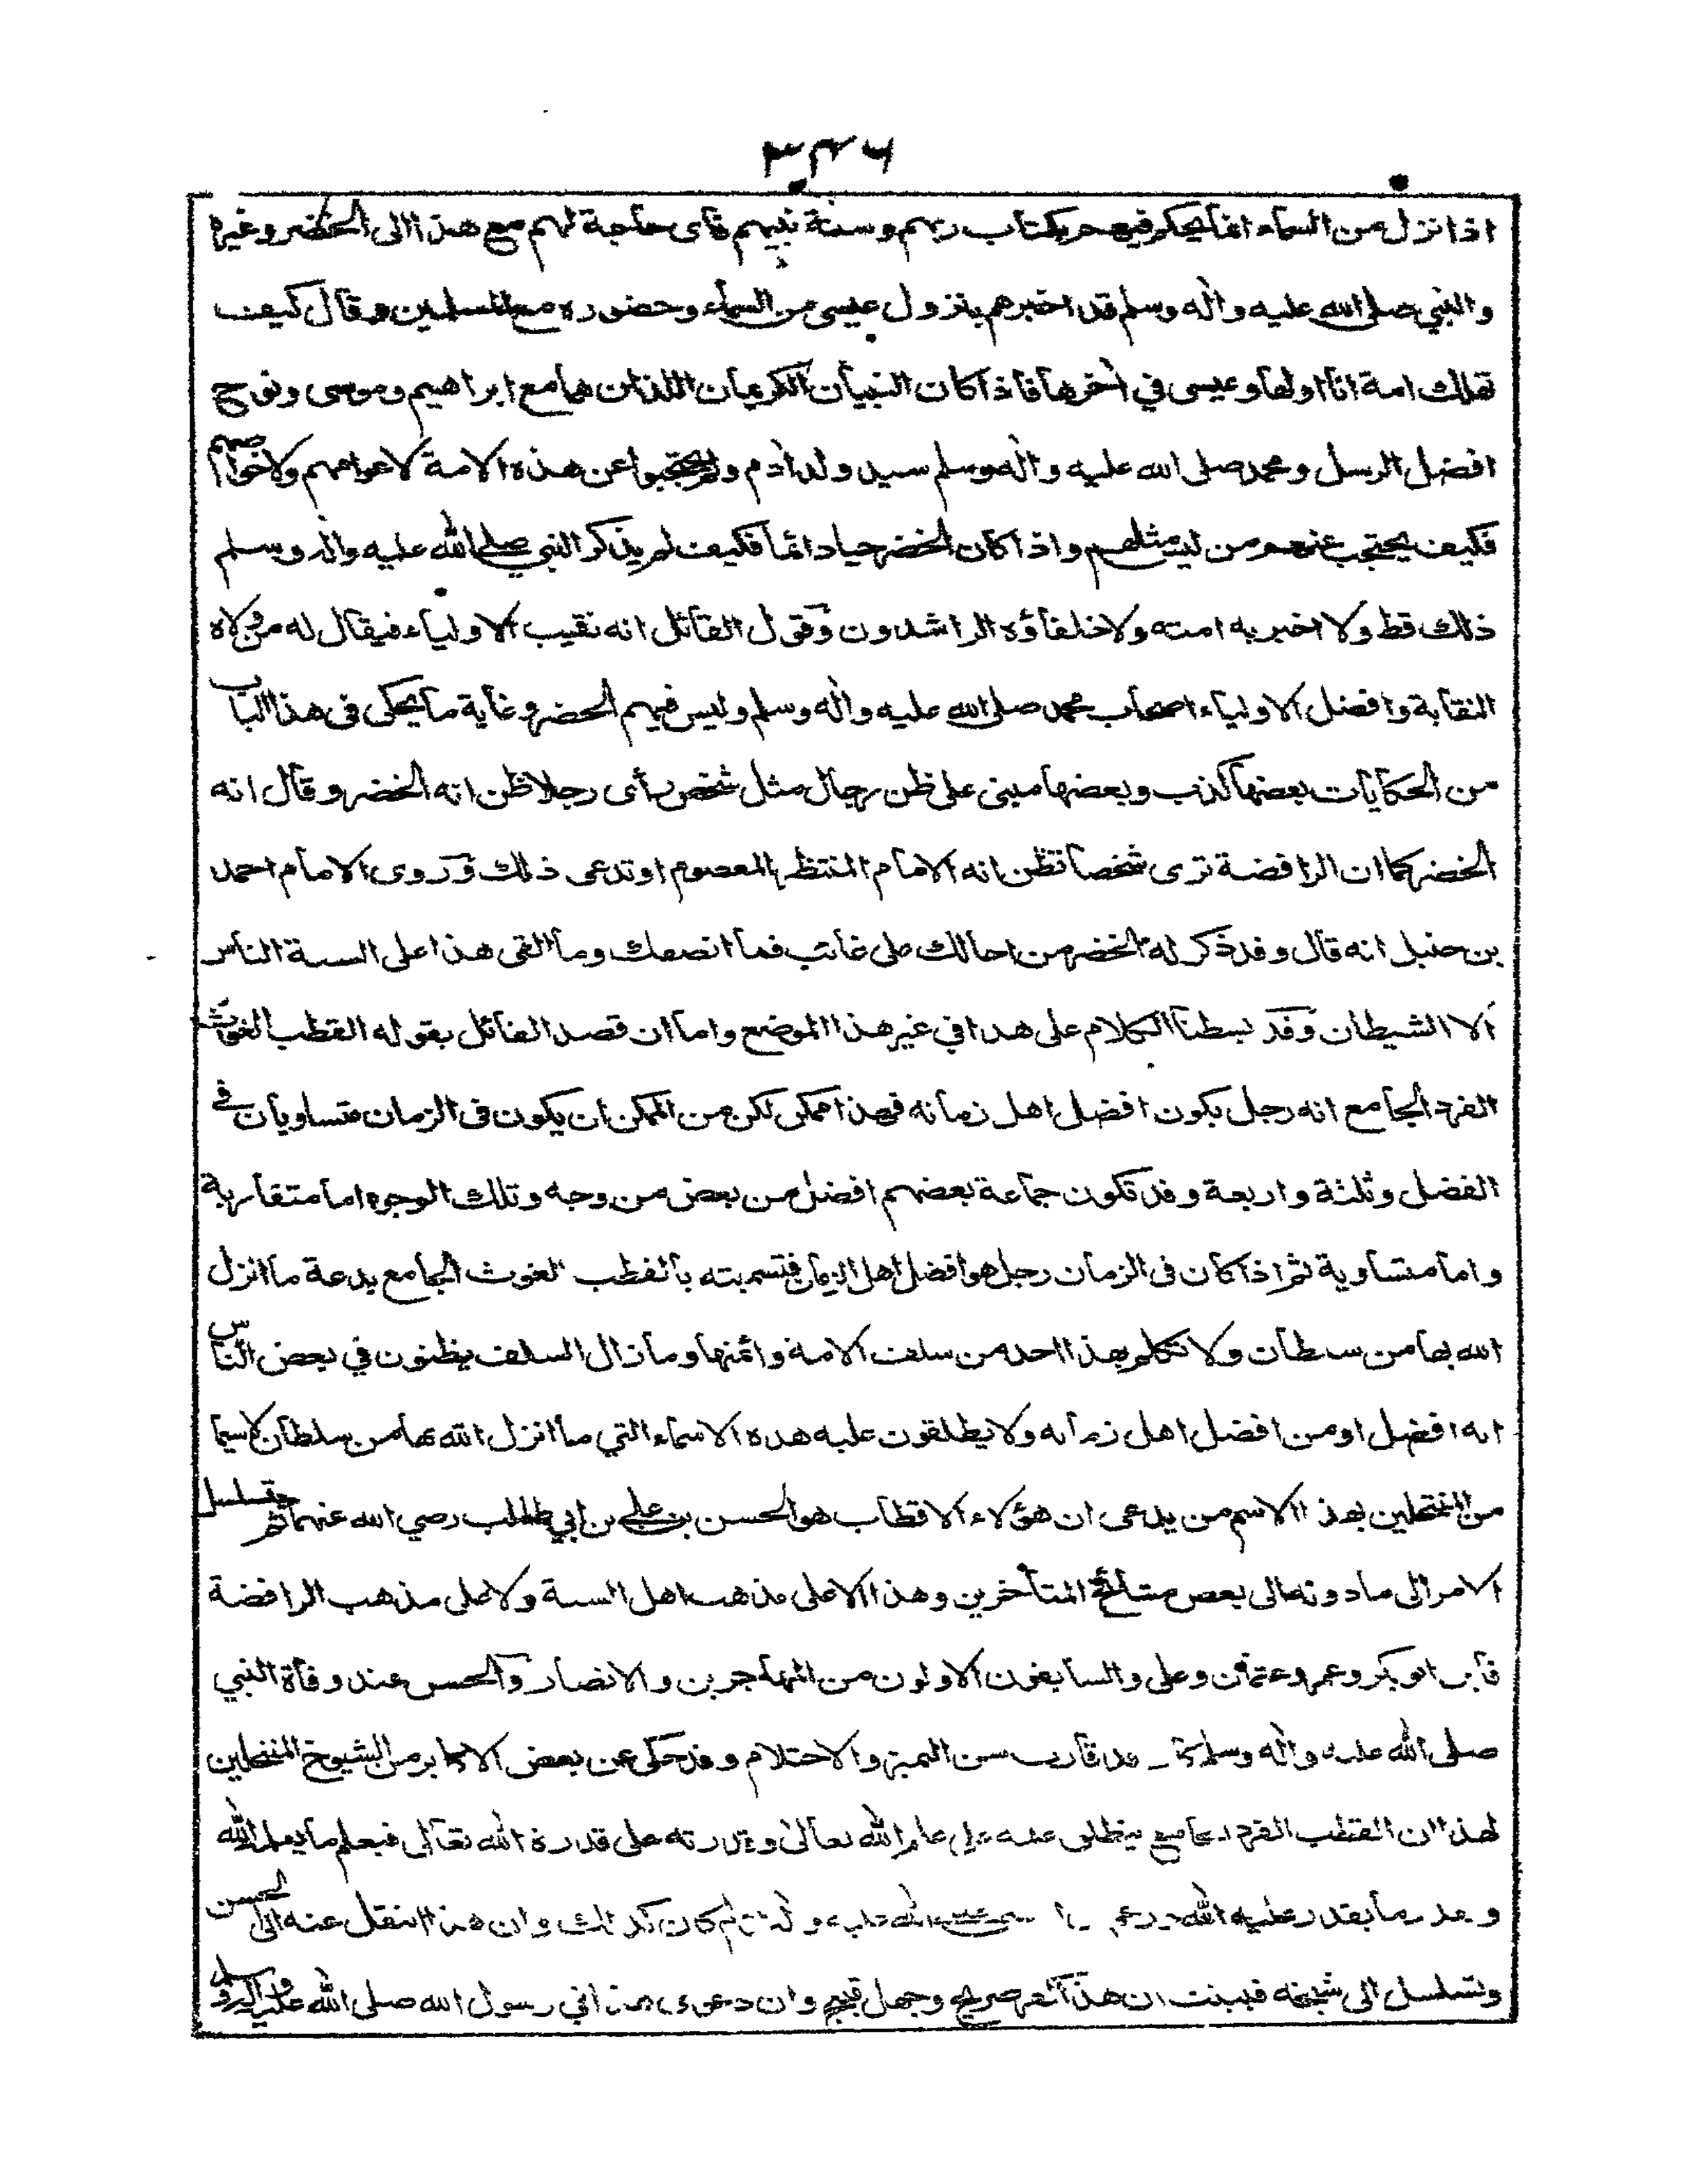 ٣٤٦
اذا نزل من السماء انما يحكم فيهم بكتاب ربهم وسنة نبيهم فأى حاجة لهم مع هذا الى الخضر وغيره
والنبي صلى الله عليه واله وسلم قد اخبرهم بنزول عيسى من السماء وحضوره مع المسلمين وقال كيف
تهلك امة انا اولها وعيسى في اخرها فاذا كان النبيان الكريمان اللذان هما مع ابراهيم وموسى ونوح
افضل الرسل ومحمد صلى الله عليه واله وسلم سيد ولد ادم ولم يحتجبوا عن هذه الامة لا عوامهم ولا خواصهم
فكيف يحتجب عنهم من ليس مثلهم واذا كان الخضر حيا دائما فكيف لم يذكر النبي صلى الله عليه واله وسلم
ذلك قط ولا اخبر به امته ولا خلفاؤه الراشدون وقول القائل انه نقيب الاولياء فيقال له من ولاه
النقابة وافضل الاولياء اصحاب محمد صلى الله عليه واله وسلم وليس فيهم الخضر وغاية ما يحكى فى هذا الباب
من الحكايات بعضها كذب وبعضها مبنى على ظن رجال مثل شخص رأى رجلا ظن انه الخضر وقال انه
الخضر كما ان الرافضة ترى شخصا تظن انه الامام المنتظر المعصوم او تدعى ذلك وروى الامام احمد
بن حنبل انه قال وقد ذكر له الخضر من احالك على غائب فما انصفك وما القى هذا على السنة الناس
الا الشيطان وقد بسطنا الكلام على هذا في غير هذا الموضع واما ان قصد القائل بقوله القطب الغوث
الفرد الجامع انه رجل يكون افضل اهل زمانه فهذا ممكن لكن من الممكن ان يكون فى الزمان متساويان في
الفضل وثلثة واربعة وقد تكون جماعة بعضهم افضل من بعض من وجه وتلك الوجوه اما متقاربة
واما متساوية ثم اذا كان فى الزمان رجل هو افضل اهل الزمان فتسميته بالقطب الغوث الجامع بدعة ما انزل
الله بها من سلطان ولا تكلم بهذا احد من سلف الامة وائمتها وما زال السلف يظنون في بعض الناس
انه افضل او من افضل اهل زمانه ولا يطلقون عليه هذه الاسماء التي ما انزل الله بها من سلطان لا سيما
من المنتحلين بهذا الاسم من يدعى ان هؤلاء الاقطاب هو الحسن بن علي بن ابي طالب رضي الله عنهما ثم يتسلسل
الامر الى ما دونه الى بعض مشائخ المتأخرين وهذا لا على مذهب اهل السنة ولا على مذهب الرافضة
فأين ابو بكر وعمر وعثمان وعلى والسابقون الاولون من المهاجرين والانصار والحسن عند وفاة النبي
صلى الله عليه واله وسلم كان قد قارب سن التميز والاحتلام وقد حكى عن بعض الاكابر من الشيوخ المنتحلين
لهذا ان القطب الفرد الجامع ينطلق علمه على علم الله تعالى وقدرته على قدرة الله تعالى فيعلم ما يعلم الله
ويقدر ما يقدر عليه الله وزعم ان النبي صلى الله عليه واله وسلم كان كذلك وان هذا انتقل عنه الى الحسن
وتسلسل الى شيخه فبينت ان هذا كفر صريح وجهل قبيح وان دعوى هذا في رسول الله صلى الله عليه واله وسلم